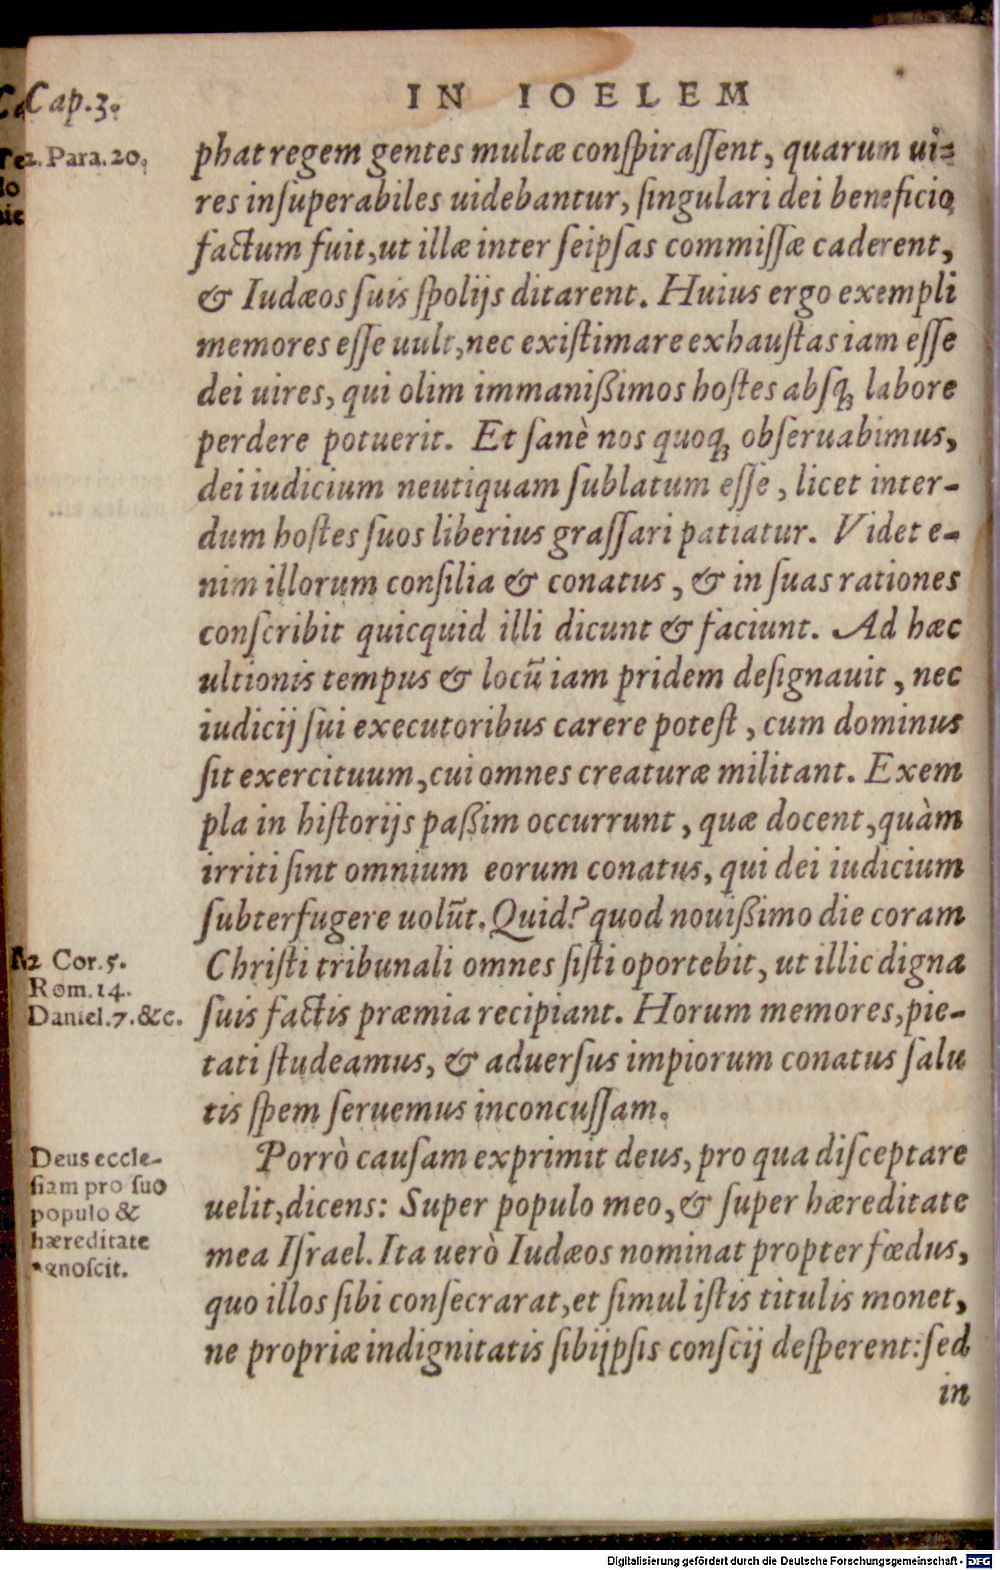 Cap.3.
IN IOELEM
2. Para. 20.
phat regem gentes multæ conſpiraſſent, quarum ui-
res inſuperabiles uidebantur, ſingulari dei beneficio
factum fuit, ut illæ inter ſeipſas commiſſæ caderent,
& Iudæos ſuis ſpolijs ditarent. Huius ergo exempli
memores eſſe uult, nec exiſtimare exhauſtas iam eſſe
dei uires, qui olim immanißimos hoſtes abſq; labore
perdere potuerit. Et ſanè nos quoq; obſeruabimus,
dei iudicium neutiquam ſublatum eſſe, licet inter-
dum hoſtes ſuos liberius graſſari patiatur. Videt e-
nim illorum conſilia & conatus, & in ſuas rationes
conſcribit quicquid illi dicunt & faciunt. Ad hæc
ultionis tempus & locũ iam pridem deſignauit, nec
iudicij ſui executoribus carere poteſt, cum dominus
ſit exercituum, cui omnes creaturæ militant. Exem
pla in hiſtorijs paßim occurrunt, quæ docent, quàm
irriti ſint omnium eorum conatus, qui dei iudicium
ſubterfugere uolũt. Quid? quod nouißimo die coram
2 Cor. 5.
Rom. 14.
Daniel. 7. &c.
Chriſti tribunali omnes ſiſti oportebit, ut illic digna
ſuis factis præmia recipiant. Horum memores, pie-
tati ſtudeamus, & aduerſus impiorum conatus ſalu
tis ſpem ſeruemus inconcuſſam.
Deus eccle-
ſiam pro ſuo
populo &
hæreditate
agnoſcit.
Porrò cauſam exprimit deus, pro qua diſceptare
uelit, dicens: Super populo meo, & ſuper hæreditate
mea Iſrael. Ita uerò Iudæos nominat propter fœdus,
quo illos ſibi conſecrarat, et ſimul iſtis titulis monet,
ne propriæ indignitatis ſibijpſis conſcij deſperent: ſed
in
Digitalisierung gefördert durch die Deutsche Forschungsgemeinschaft - DFG